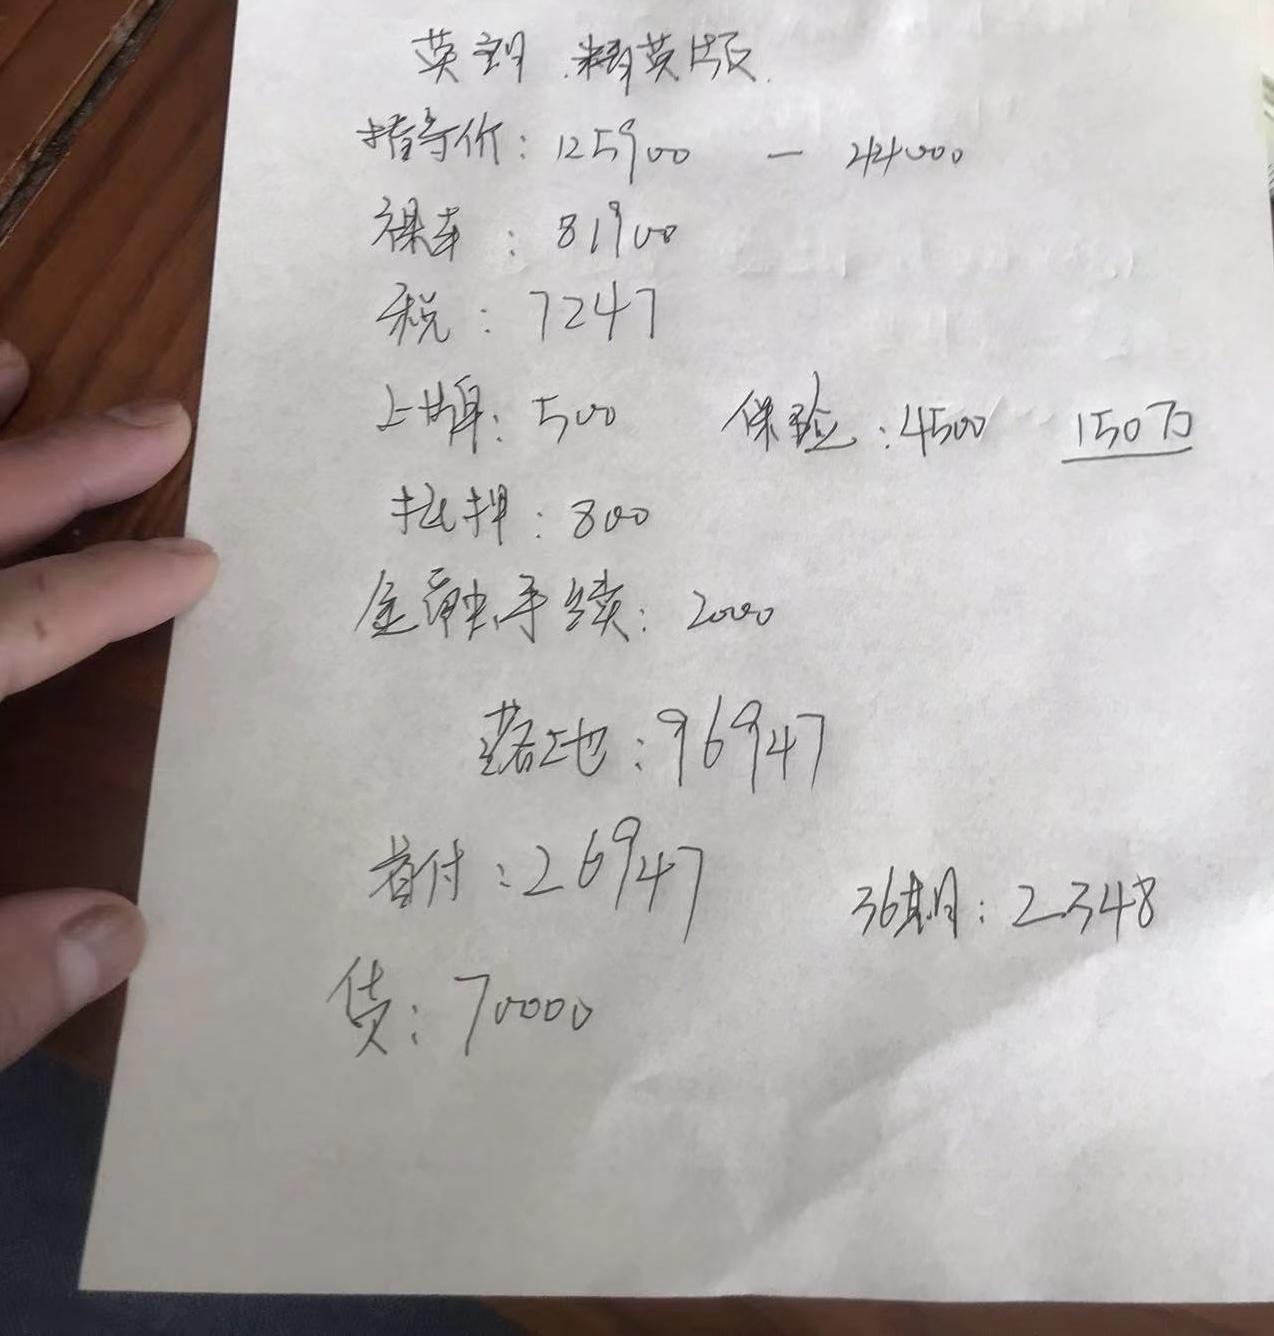 英朗 精英版
指导价: 125900 — 44000
裸车: 81900
税: 7247
上牌: 500 保险: 4500 150万
抵押: 800
金融手续: 2000
落地: 96947
首付: 26947 36期: 2348
贷: 70000